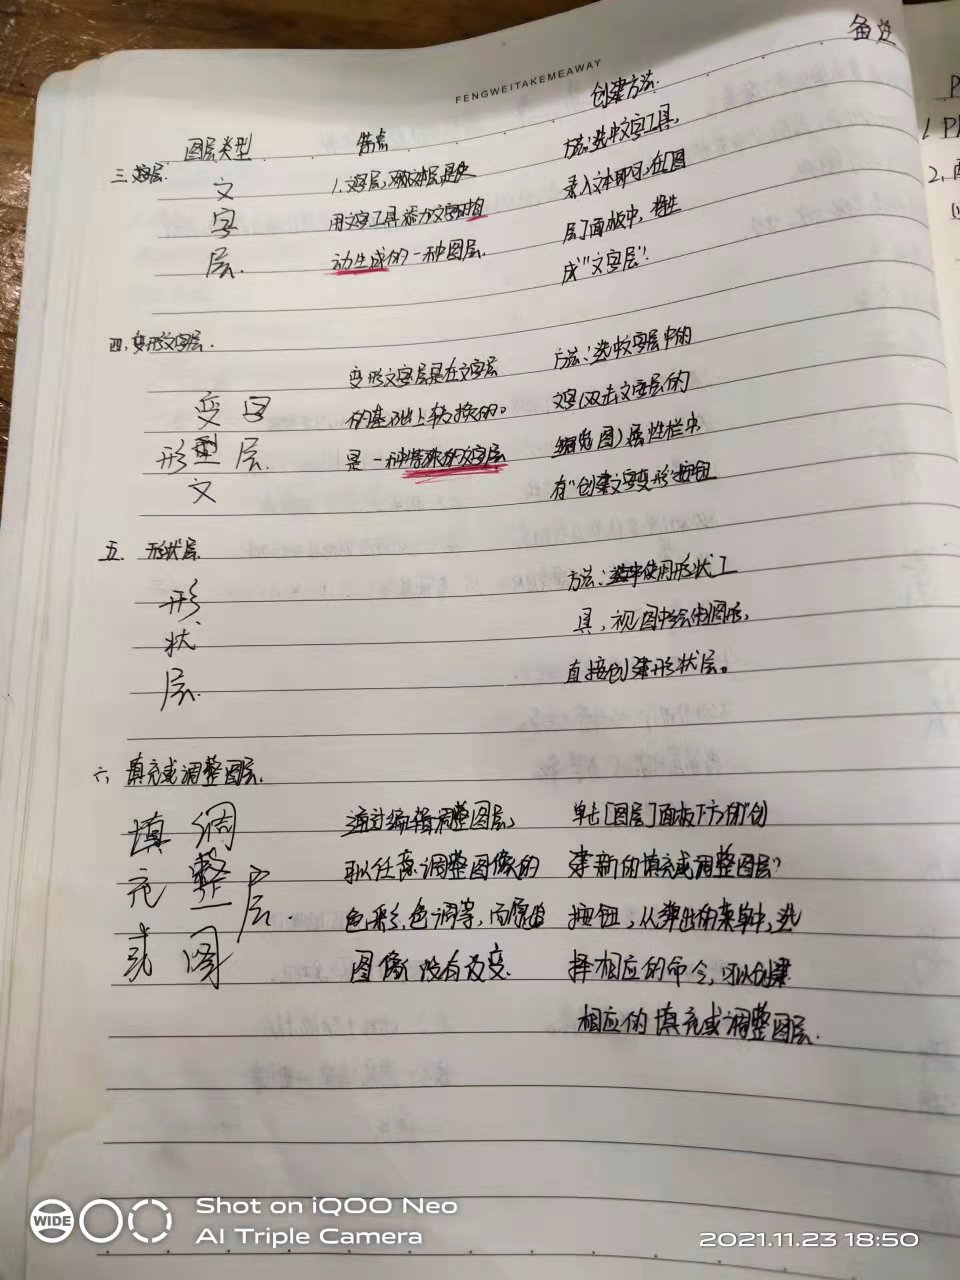 备注
FENGWEITAKEMEAWAY
图层类型 特点 创建方法:
三.文字层.
文字层.
1.文字层,又称文本层,是使
用文字工具添加文字时自
动生成的一种图层.
方法:选中文字工具,
录入文本即可,在图
层面板中,将生
成"文字层".
四.变形文字层.
变形文字型层.
变形文字层是在文字层
的基础上转换的。
是一种特殊的文字层
方法:选中文字层中的
文字(双击文字层的
缩览图)属性栏中
有"创建文字变形"按钮
五.形状层.
形状层.
方法:选中使用形状工
具,视图中绘制图形,
直接创建形状层。
六.填充或调整图层.
填充或调整图层.
通过编辑调整图层,
可以任意调整图像的
色彩,色调等,而原始
图像没有改变.
单击[图层]面板下方的"创
建新的填充或调整图层"
按钮,从弹出的菜单中,选
择相应的命令,可以创建
相应的填充或调整图层.
WIDE
Shot on iQOO Neo
AI Triple Camera
2021.11.23 18:50